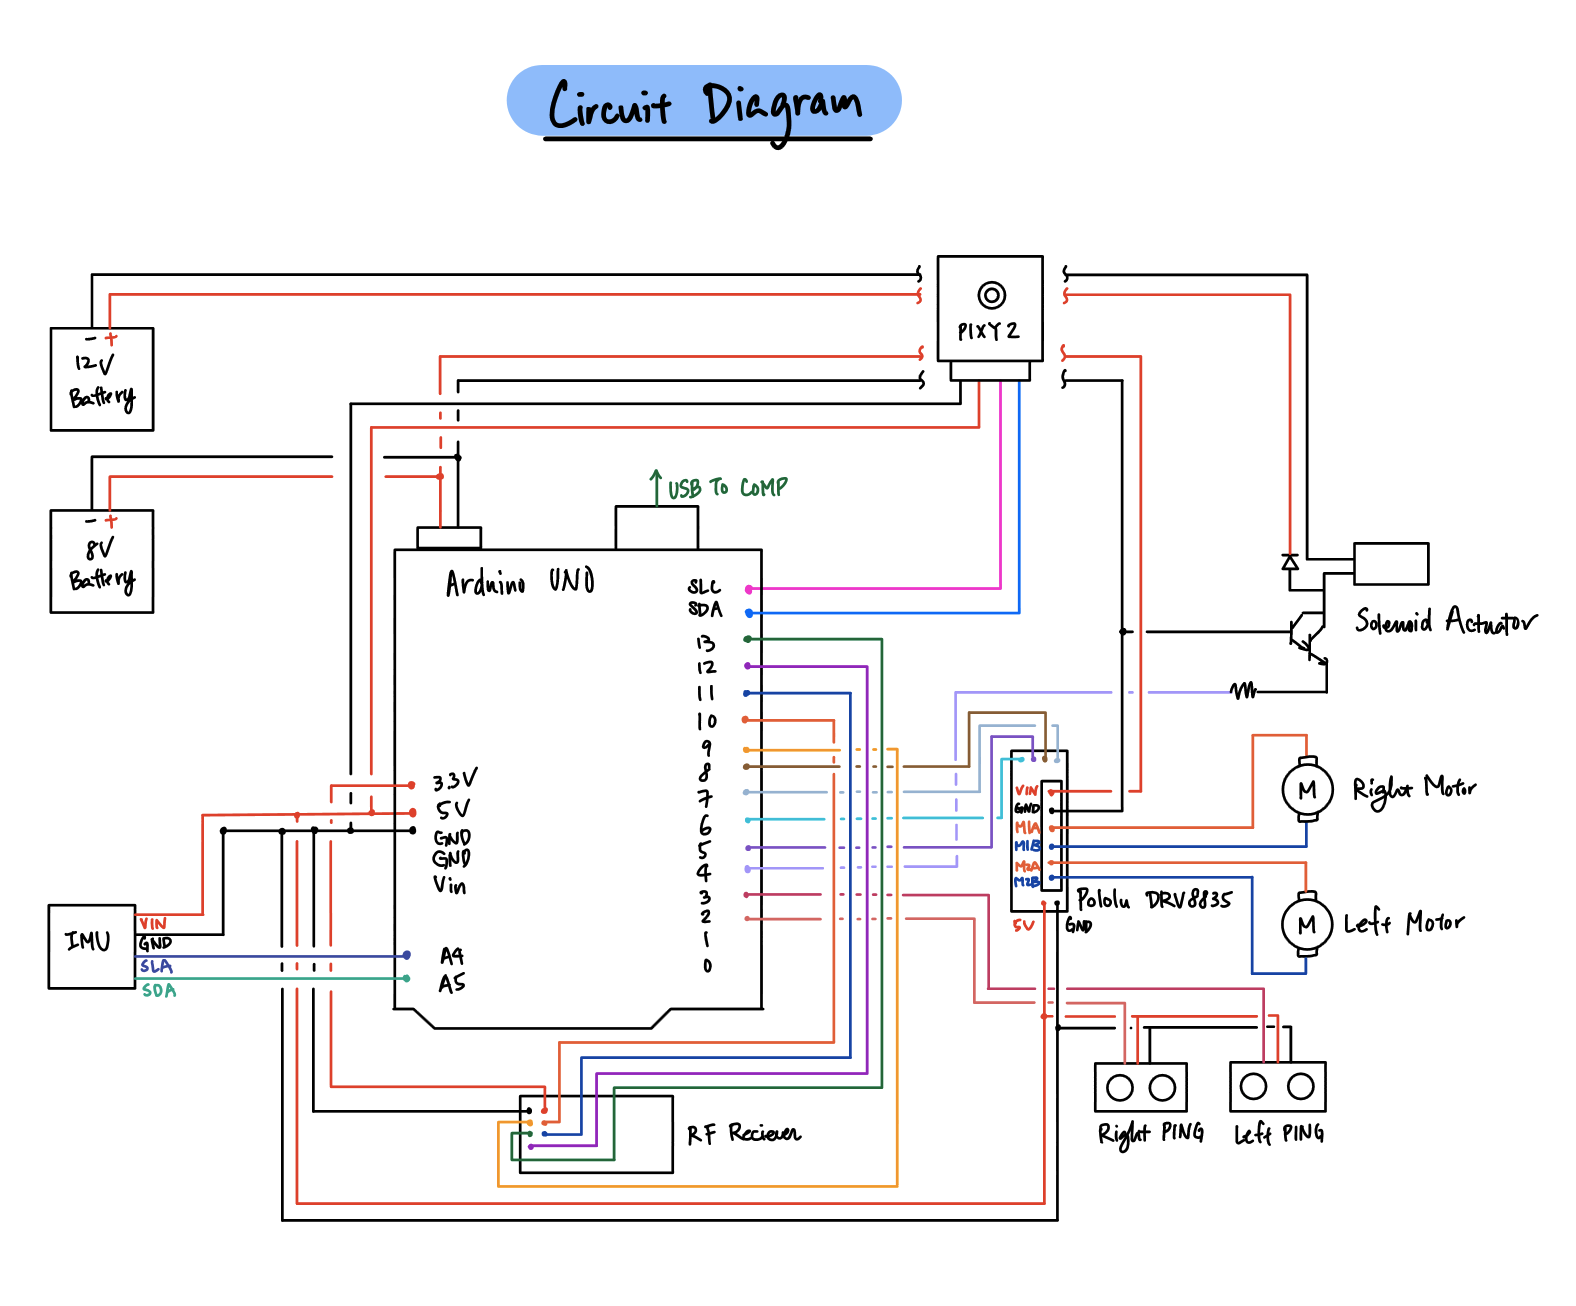 Circuit Diagram
PIXY 2
- +
12V
Battery
- +
8V
Battery
USB TO COMP
Arduino UNO
SLC
SDA
13
12
11
10
9
8
7
6
5
4
3
2
1
0
3.3V
5V
GND
GND
Vin
A4
A5
IMU
VIN
GND
SLA
SDA
Solenoid Actuator
VIN
GND
M1A
M1B
M2A
M2B
5V
GND
Pololu DRV8835
M
Right Motor
M
Left Motor
Right PING
Left PING
RF Reciever